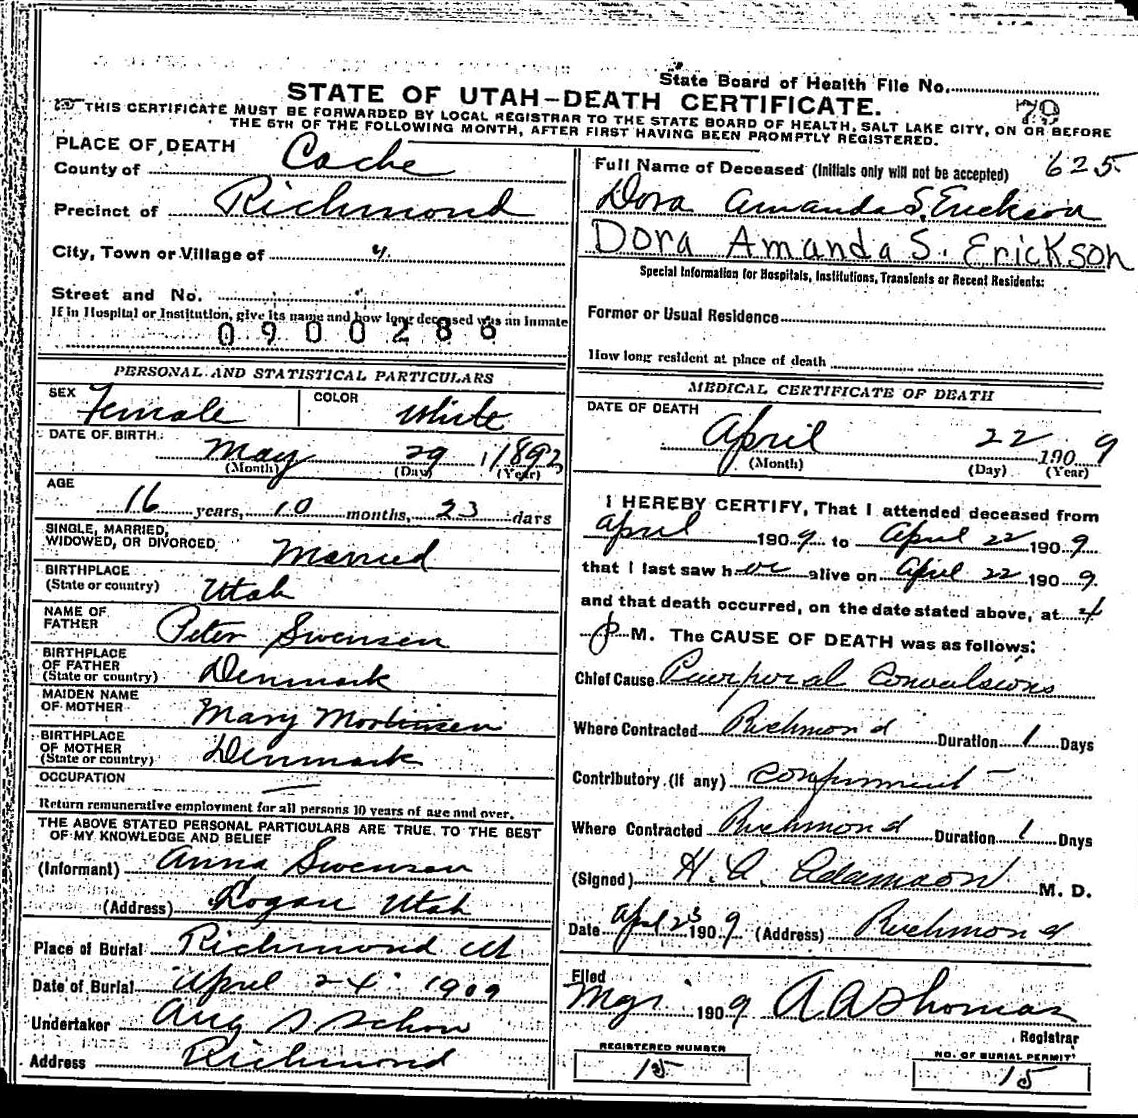 State Board of Health File No.
79
STATE OF UTAH-DEATH CERTIFICATE.
THIS CERTIFICATE MUST BE FORWARDED BY LOCAL REGISTRAR TO THE STATE BOARD OF HEALTH, SALT LAKE CITY, ON OR BEFORE
THE 5TH OF THE FOLLOWING MONTH, AFTER FIRST HAVING BEEN PROMPTLY REGISTERED.
PLACE OF DEATH
County of Cache
Precinct of Richmond
City, Town or Village of "
Street and No.
If in Hospital or Institution, give its name and how long deceased was an inmate
0900286
PERSONAL AND STATISTICAL PARTICULARS
SEX Female COLOR White
DATE OF BIRTH. May 29 1892
(Month) (Day) (Year)
AGE
16 years, 10 months, 23 days
SINGLE, MARRIED,
WIDOWED, OR DIVORCED Married
BIRTHPLACE
(State or country) Utah
NAME OF
FATHER Peter Swensen
BIRTHPLACE
OF FATHER
(State or country) Denmark
MAIDEN NAME
OF MOTHER Mary Mortensen
BIRTHPLACE
OF MOTHER
(State or country) Denmark
OCCUPATION —
Return remunerative employment for all persons 10 years of age and over.
THE ABOVE STATED PERSONAL PARTICULARS ARE TRUE TO THE BEST
OF MY KNOWLEDGE AND BELIEF
(Informant) Anna Swensen
(Address) Logan Utah
Place of Burial Richmond Ut
Date of Burial April 24 1909
Undertaker Aug S Schow
Address Richmond
625
Full Name of Deceased (Initials only will not be accepted)
Dora Amanda S. Erickson
Dora Amanda S. Erickson
Special Information for Hospitals, Institutions, Transients or Recent Residents:
Former or Usual Residence
How long resident at place of death
MEDICAL CERTIFICATE OF DEATH
DATE OF DEATH
April 22 1909
(Month) (Day) (Year)
I HEREBY CERTIFY, That I attended deceased from
April 1909 to April 22 1909
that I last saw her alive on April 22 1909
and that death occurred, on the date stated above, at 4
P M. The CAUSE OF DEATH was as follows:
Chief Cause Puerperal Convulsions
Where Contracted Richmond Duration 1 Days
Contributory (if any) confinement -
Where Contracted Richmond Duration 1 Days
(Signed) H. A. Adamson M. D.
Date April 23 1909 (Address) Richmond
Filed
1909 A A Thomas
Registrar
REGISTERED NUMBER
15
NO. OF BURIAL PERMIT
15